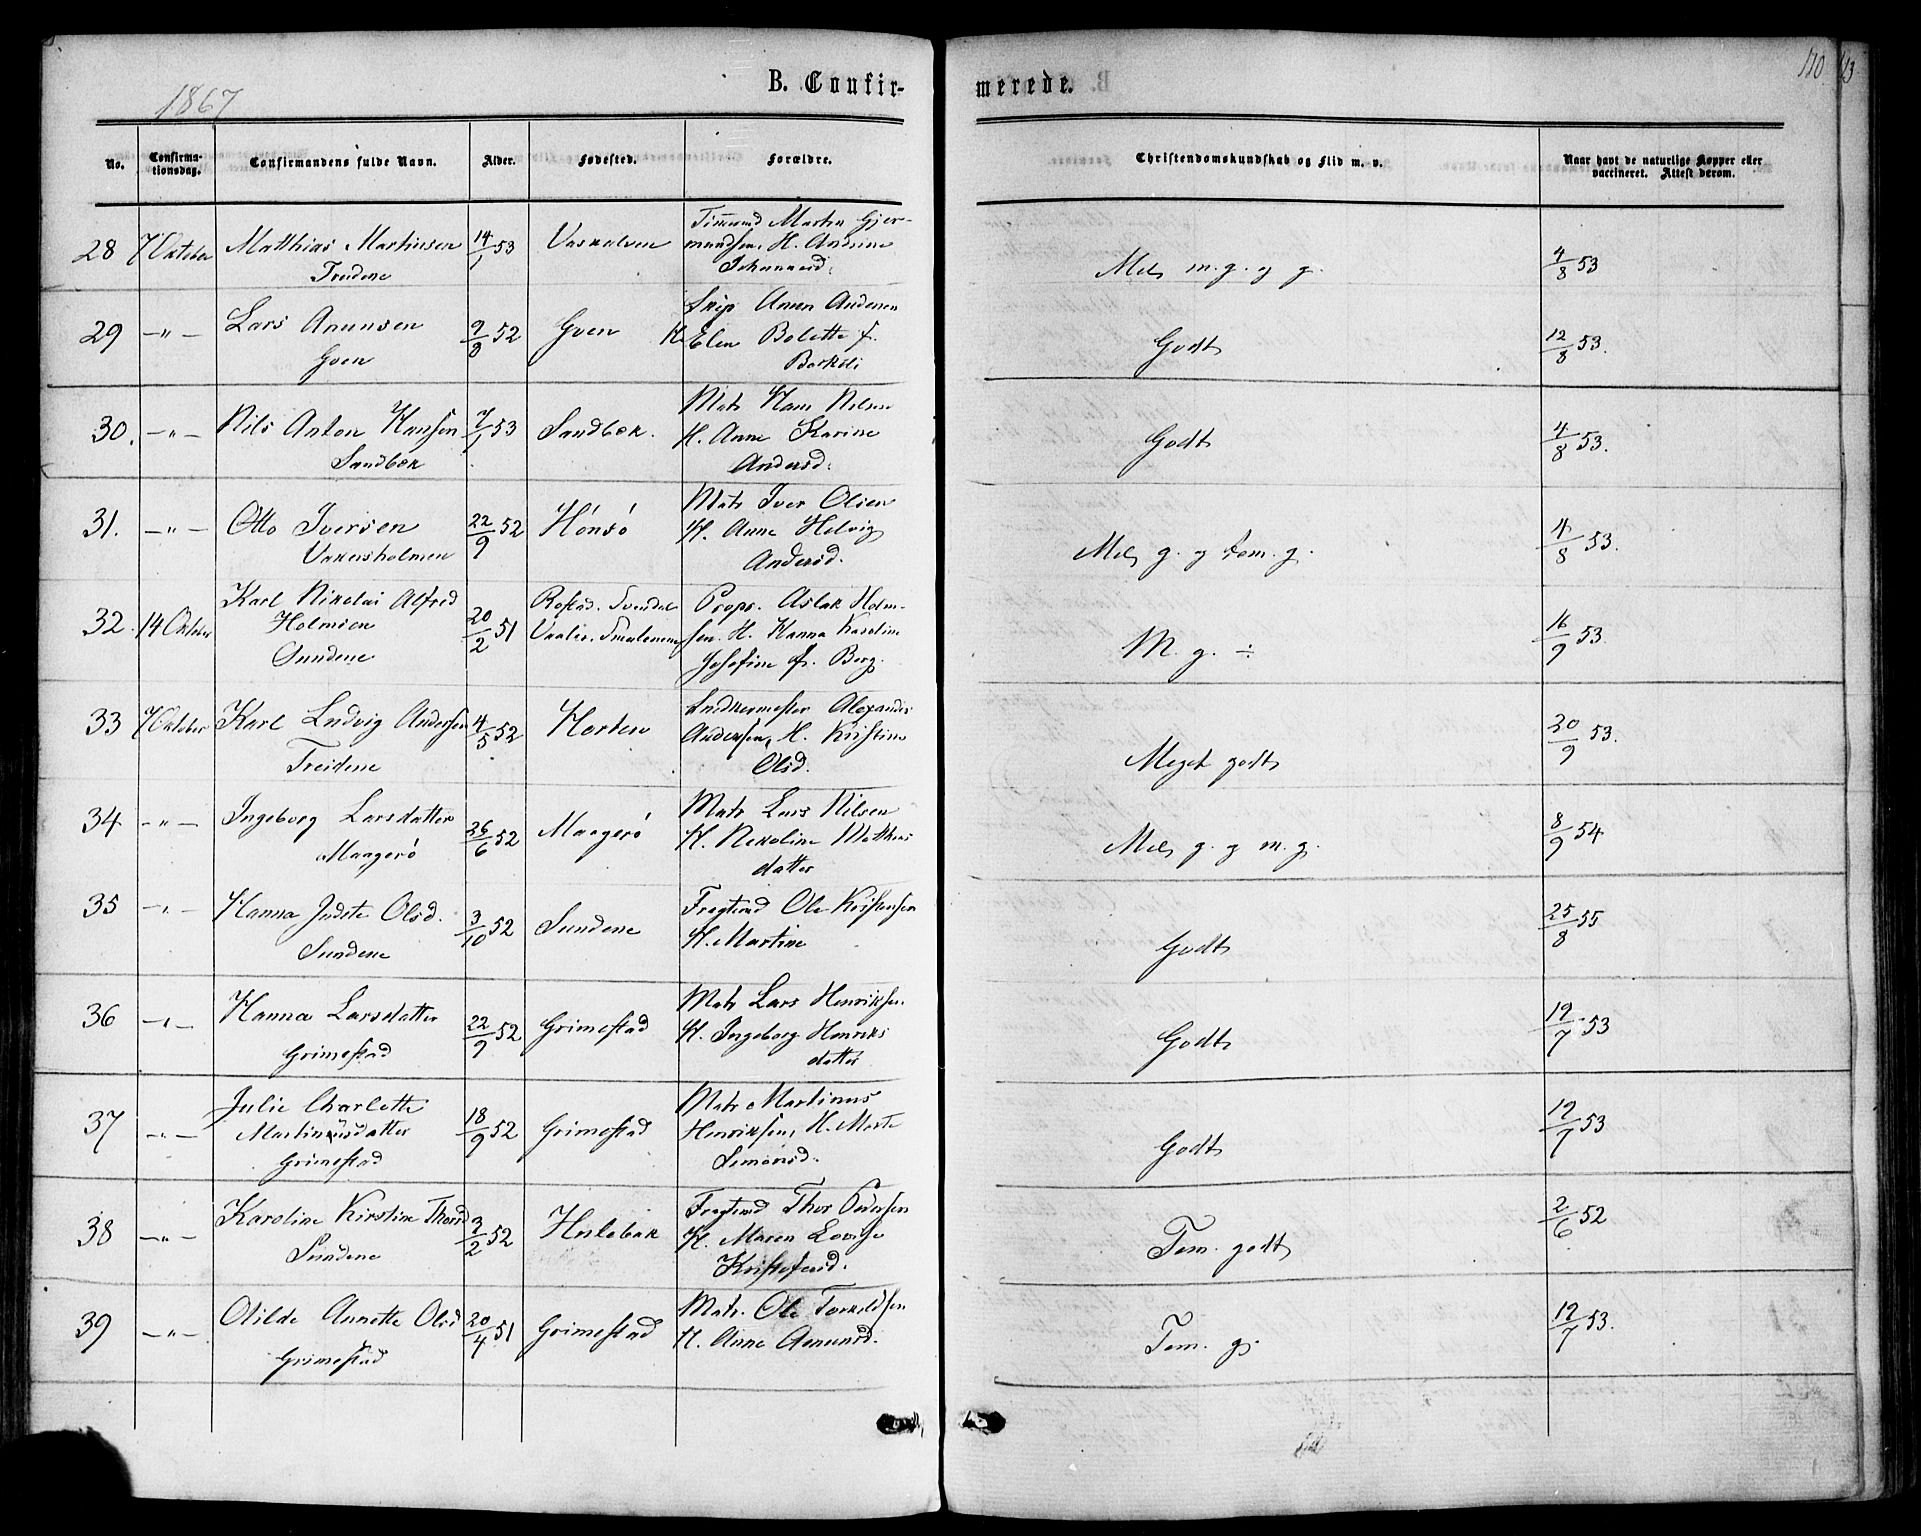 1867
B. Confir-
merede.
No.
Confirma-
tionsdag.
Confirmandens fulde Navn.
Alder.
Fødested.
Forældre.
Christendomskundskab og Flid m. v.
Naar havt de naturlige Kopper eller
vaccineret. Attest derom.
28 7 Oktober Matthias Martinsen 14/1 53
Martin Gjer-
mundsen, H. Andrine
Johannesd.
M. g. og g. 4/8 53
29 -"- Lars Anunsen
Goen 9/8 52 Goen
Skip
H. Elen Bolette f.
Godt 12/8 53.
30. -"- Nils Anton Hansen
Sandbæk 7/1 53 Sandbæk.
Matr Hans Nilsen
H. Anne Karine
Andersd.
Godt 4/8 53.
31. -"- Otto Iversen
Vakersholmen 22/9 52 Hönsö
Matr Iver Olsen
H. Anne Helvig
Andersd.
g. og tem. g. 4/8 53.
32. 14 Oktober Karl Nikolai Alfred
Holmsen
Sundene 20/2 51
Propr. Aslak Holm-
sen. H. Hanna Karoline
Josefine f. Berg.
M. g. ÷ 16/9 53.
33 7 Oktober Karl Ludvig Andersen
Treidene 4/5 52 Horten
Snedkermester Alexander
Andersen, H. Kristine
Olsd.
Meget godt 20/9 53.
34. -"- Ingeborg Larsdatter
Maagerö 26/6 52 Maagerö
Matr Lars Nilsen
H. Nekoline Mathias
datter
g. og m. g. 8/9 54
35 -"- Hanna Olsd.
Sundene 3/10 52 Sundene
Fragtmd Ole Kristensen
H. Martine
Godt 25/8 55
36 -"- Hanna Larsdatter
Grimestad 22/9 52 Grimestad
Matr Lars Henriksen.
H. Ingeborg Henriks
datter
Godt 19/7 53
37 -"- Julie Charlotte
Martinusdatter
Grimestad 18/9 52 Grimestad
Matr Martinus
Henriksen, H. Marte
Simonsd.
Godt 19/7 53
38 -"- Karoline Kirstine Thorsd
Sundene 3/2 52
Fragtmd Thor Pedersen
H. Maren Lovise
Kristofersd.
Tem. godt 2/6 52
39 -"- Annette Olsd
Grimestad 20/4 51 Grimestad
Matr. Ole Torkildsen
H. Anne Amunsd.
Tem. g. 19/7 53.